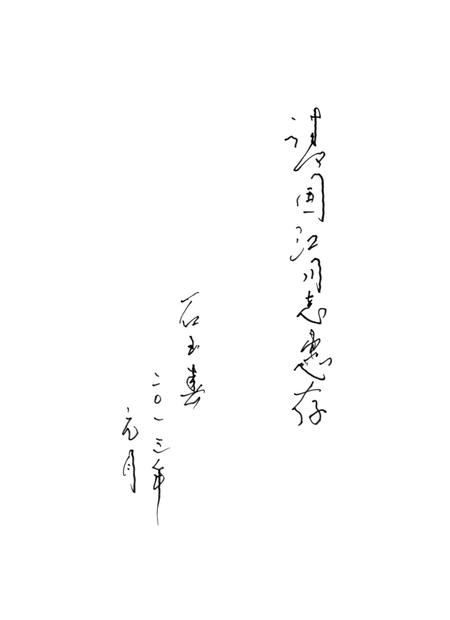 请国江同志惠存
石玉春
二〇一三年
元月